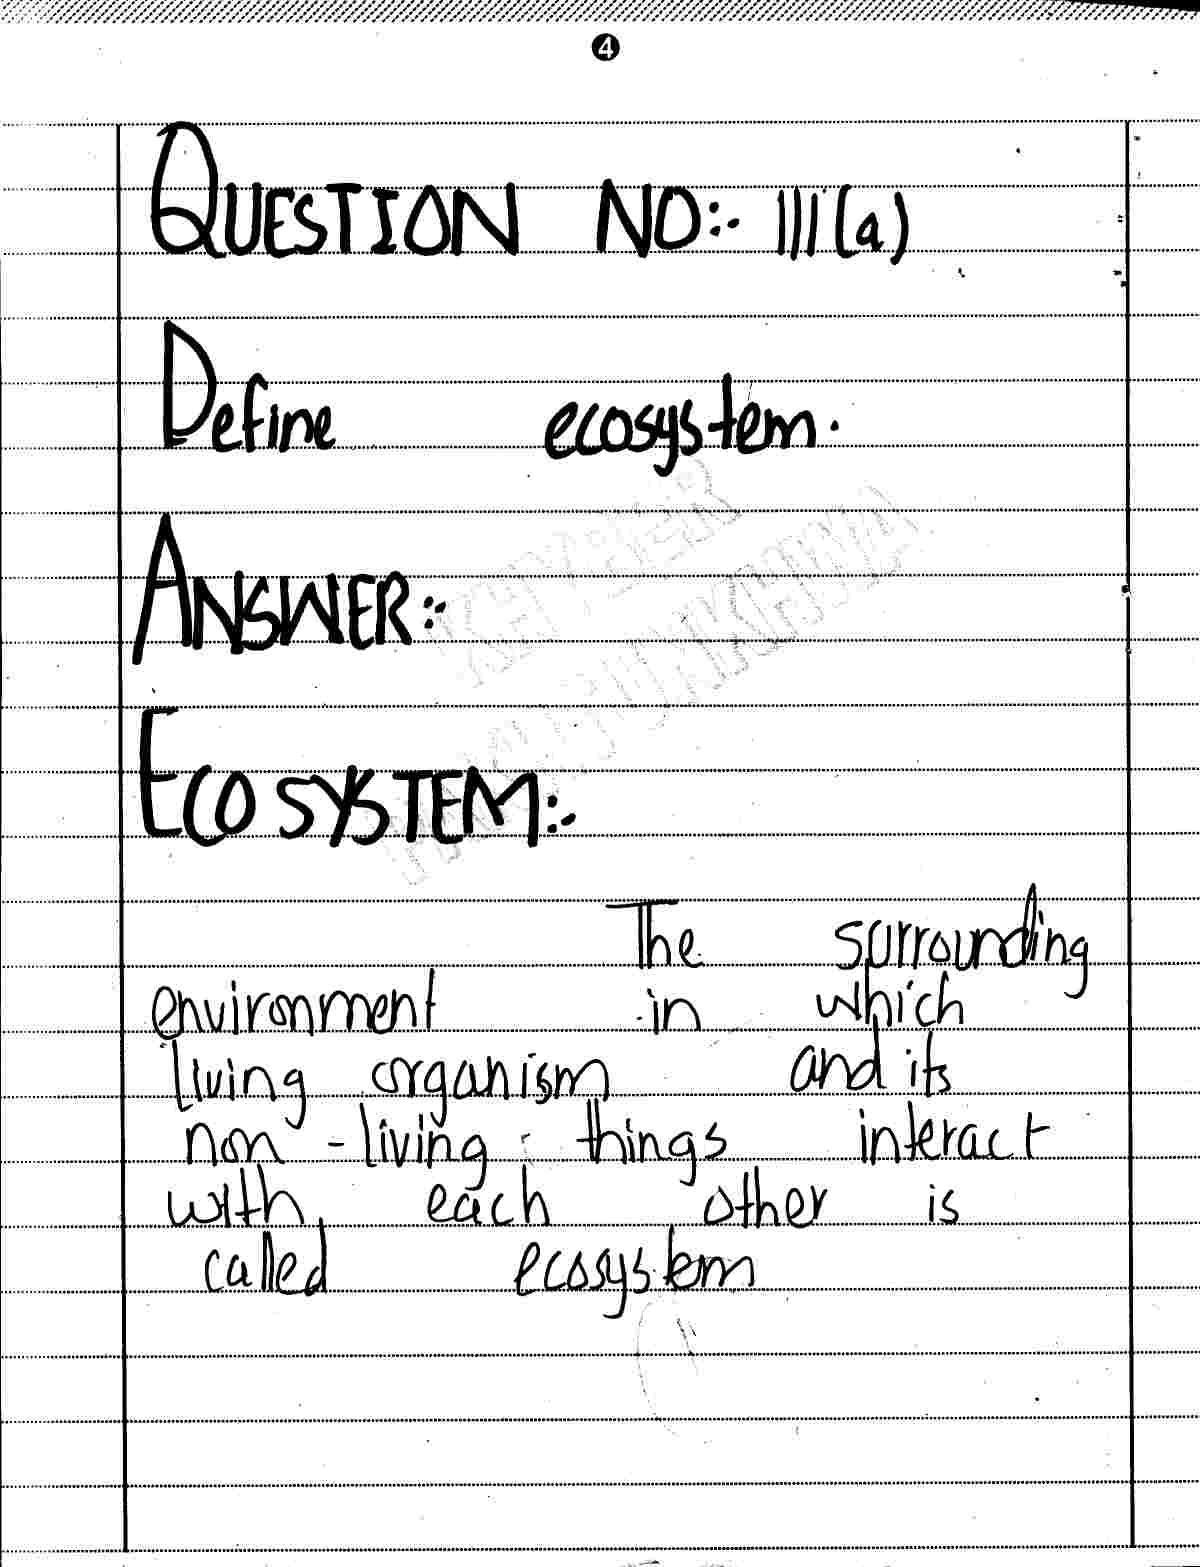 4
QUESTION NO:- iii(a)
Define ecosystem.
ANSWER:-
ECOSYSTEM:-
The surrounding
environment in which
living organism and its
non-living things interact
with each other is
called ecosystem